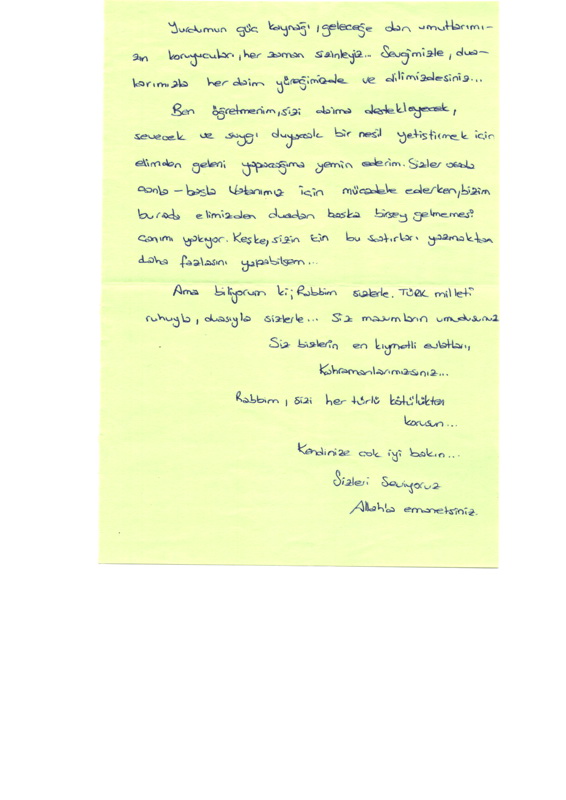 Yurdumun güç kaynağı, geleceğe dair umutlarımı-
zın koruyucuları, her zaman sizinleyiz... Sevgimizle, dua-
larımızla her daim yüreğimizde ve dilimizdesiniz...
Ben öğretmenim, sizi daima destekleyecek,
sevecek ve saygı duyacak bir nesil yetiştirmek için
elimden geleni yapacağıma yemin ederim. Sizler orada
canla - başla Vatanımız için mücadele ederken, bizim
burada elimizden duadan başka birşey gelmemesi
canımı yakıyor. Keşke, sizin için bu satırları yazmaktan
daha fazlasını yapabilsem...
Ama biliyorum ki; Rabbim sizlerle. TÜRK milleti
ruhuyla, duasıyla sizlerle... Siz masumların umudusunuz
Siz bizlerin en kıymetli evlatları,
Kahramanlarımızsınız...
Rabbim, sizi her türlü kötülükten
korusun...
Kendinize çok iyi bakın...
Sizleri Seviyoruz
Allah'a emanetsiniz.